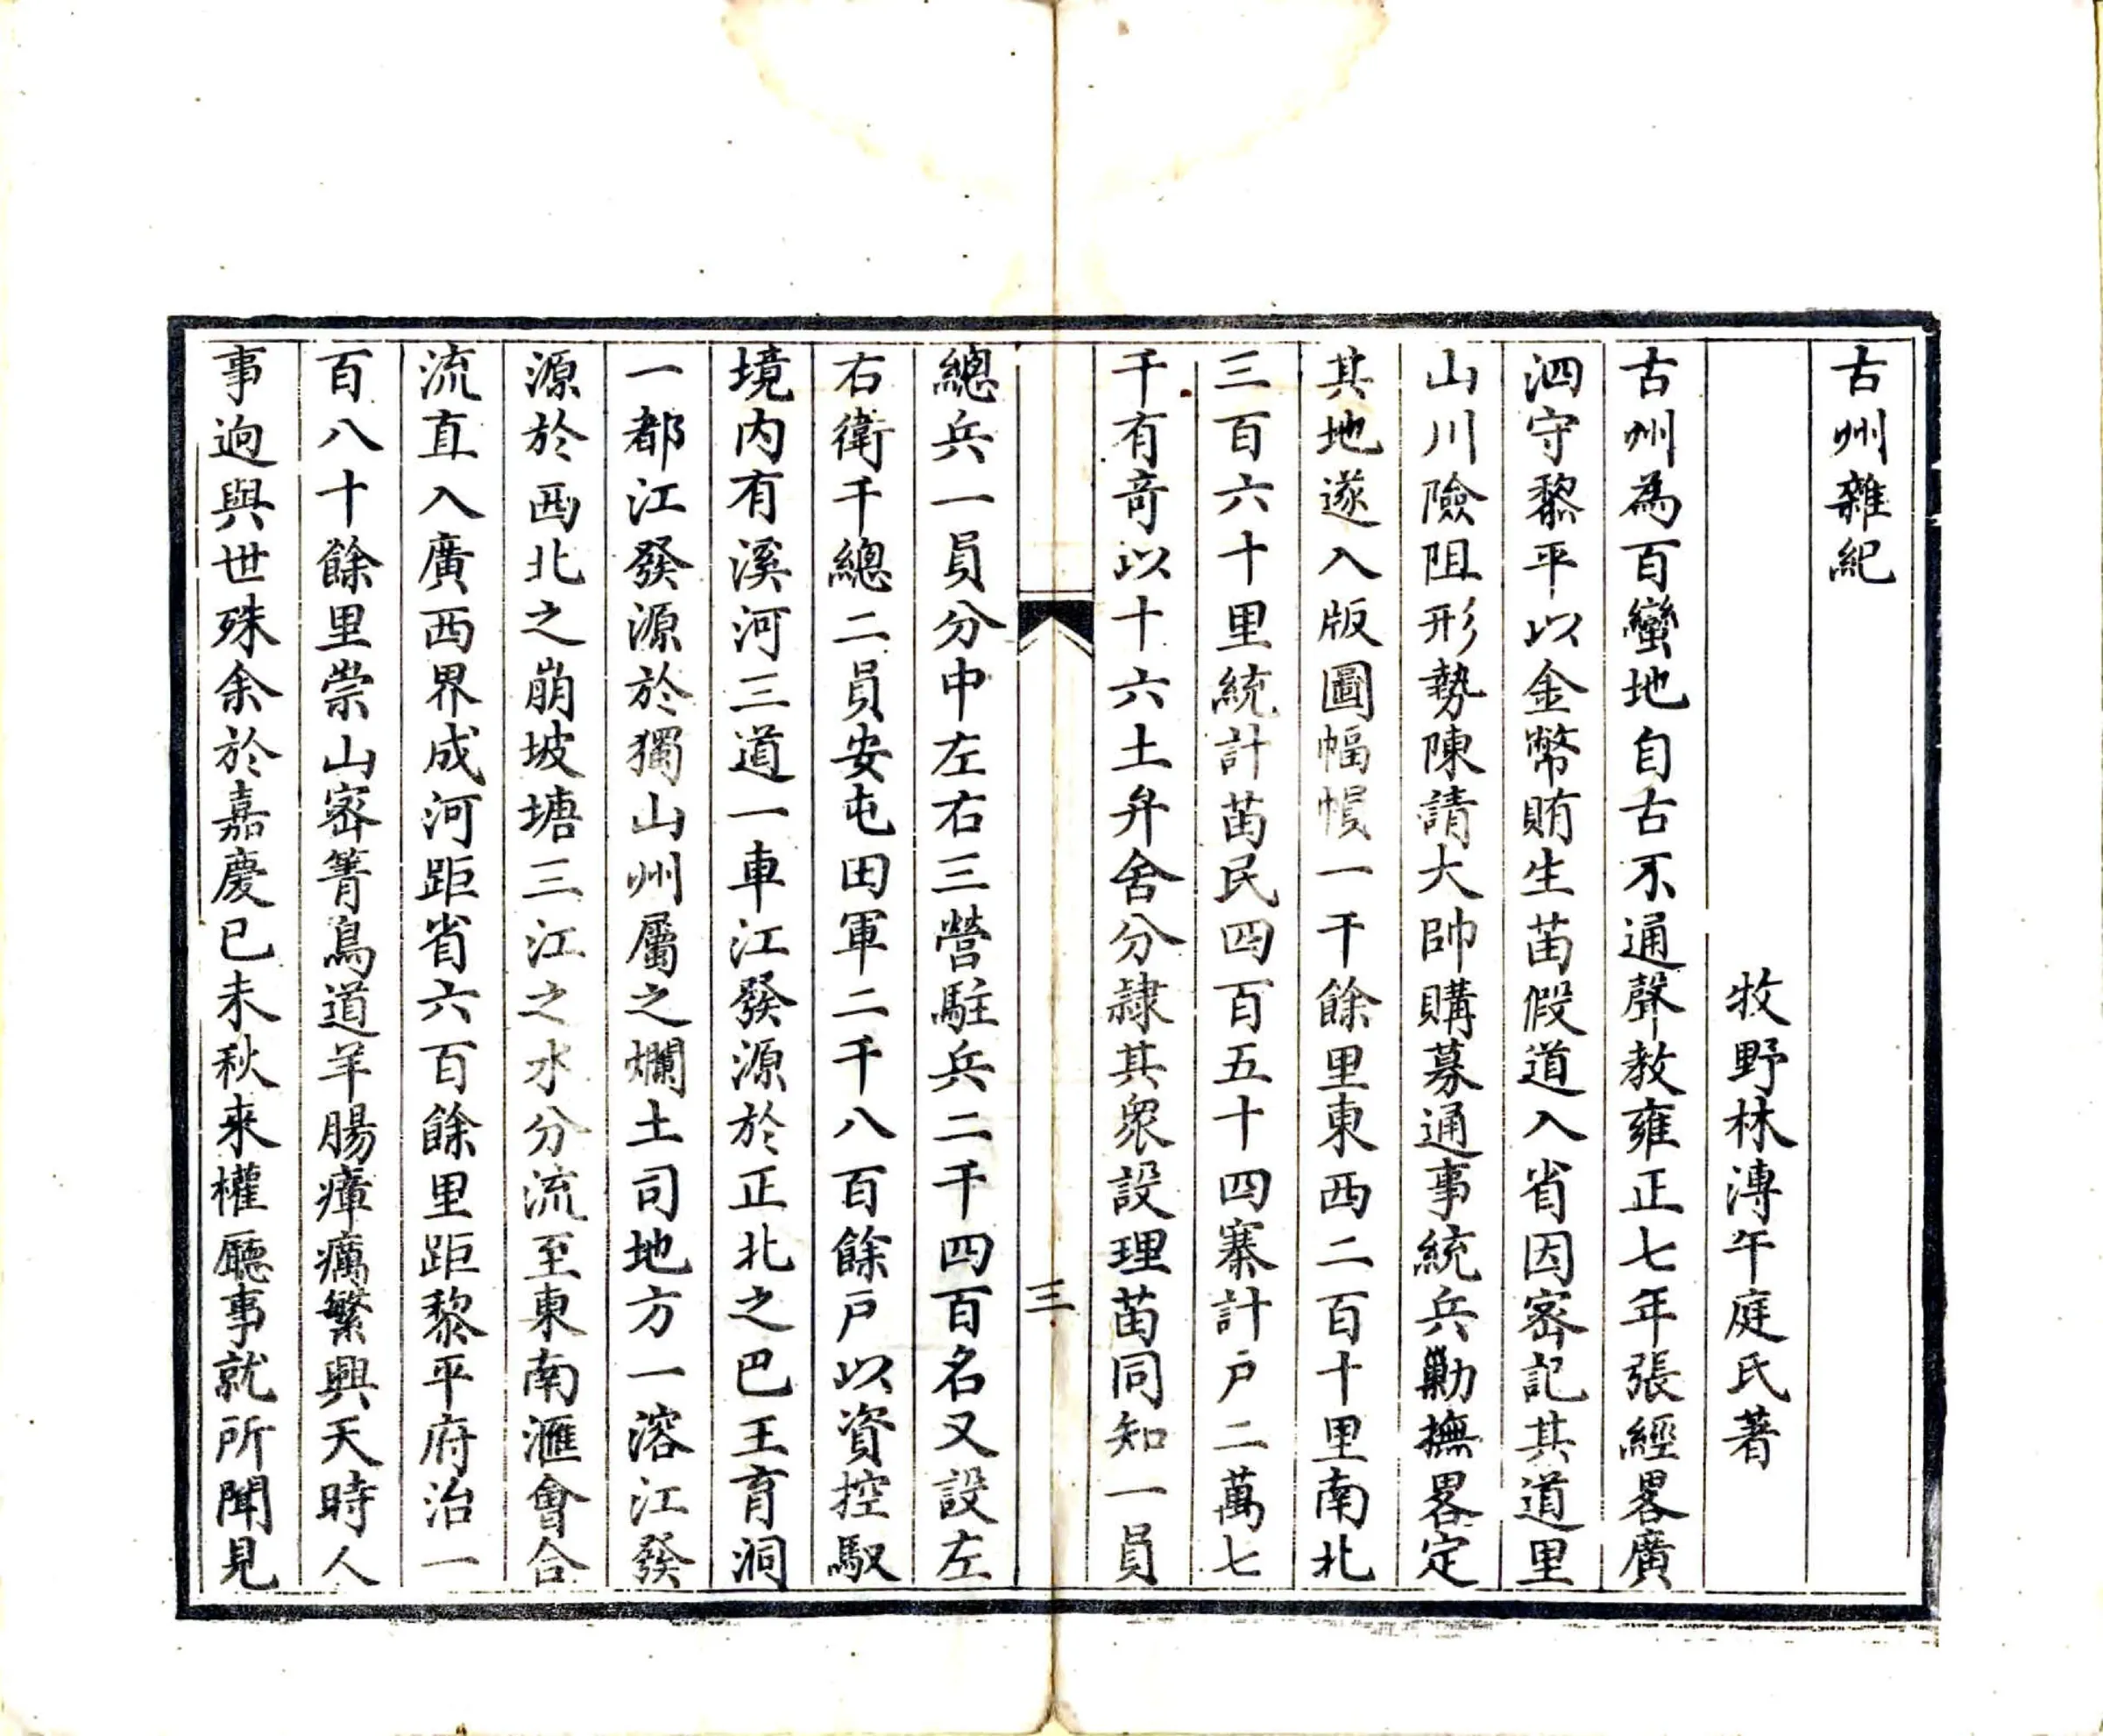 古州雜紀
牧野林溥午庭氏著
古州為百蠻地自古不通聲教雍正七年張經畧廣
泗守黎平以金幣賄生苗假道入省因密記其道里
山川險阻形勢陳請大帥購募通事統兵勦撫畧定
其地遂入版圖幅幀一千餘里東西二百十里南北
三百六十里統計苗民四百五十四寨計戶二萬七
千有奇以十六土弁舍分隸其眾設理苗同知一員
三
總兵一員分中左右三營駐兵二千四百名又設左
右衛千總二員安屯田軍二千八百餘戶以資控馭
境內有溪河三道一車江發源於正北之巴王育洞
一都江發源於獨山州屬之爛土司地方一溶江發
源於西北之崩坡塘三江之水分流至東南滙會合
流直入廣西界成河距省六百餘里距黎平府治一
百八十餘里崇山密箐鳥道羊腸瘴癘繁興天時人
事逈與世殊余於嘉慶己未秋来權廳事就所聞見